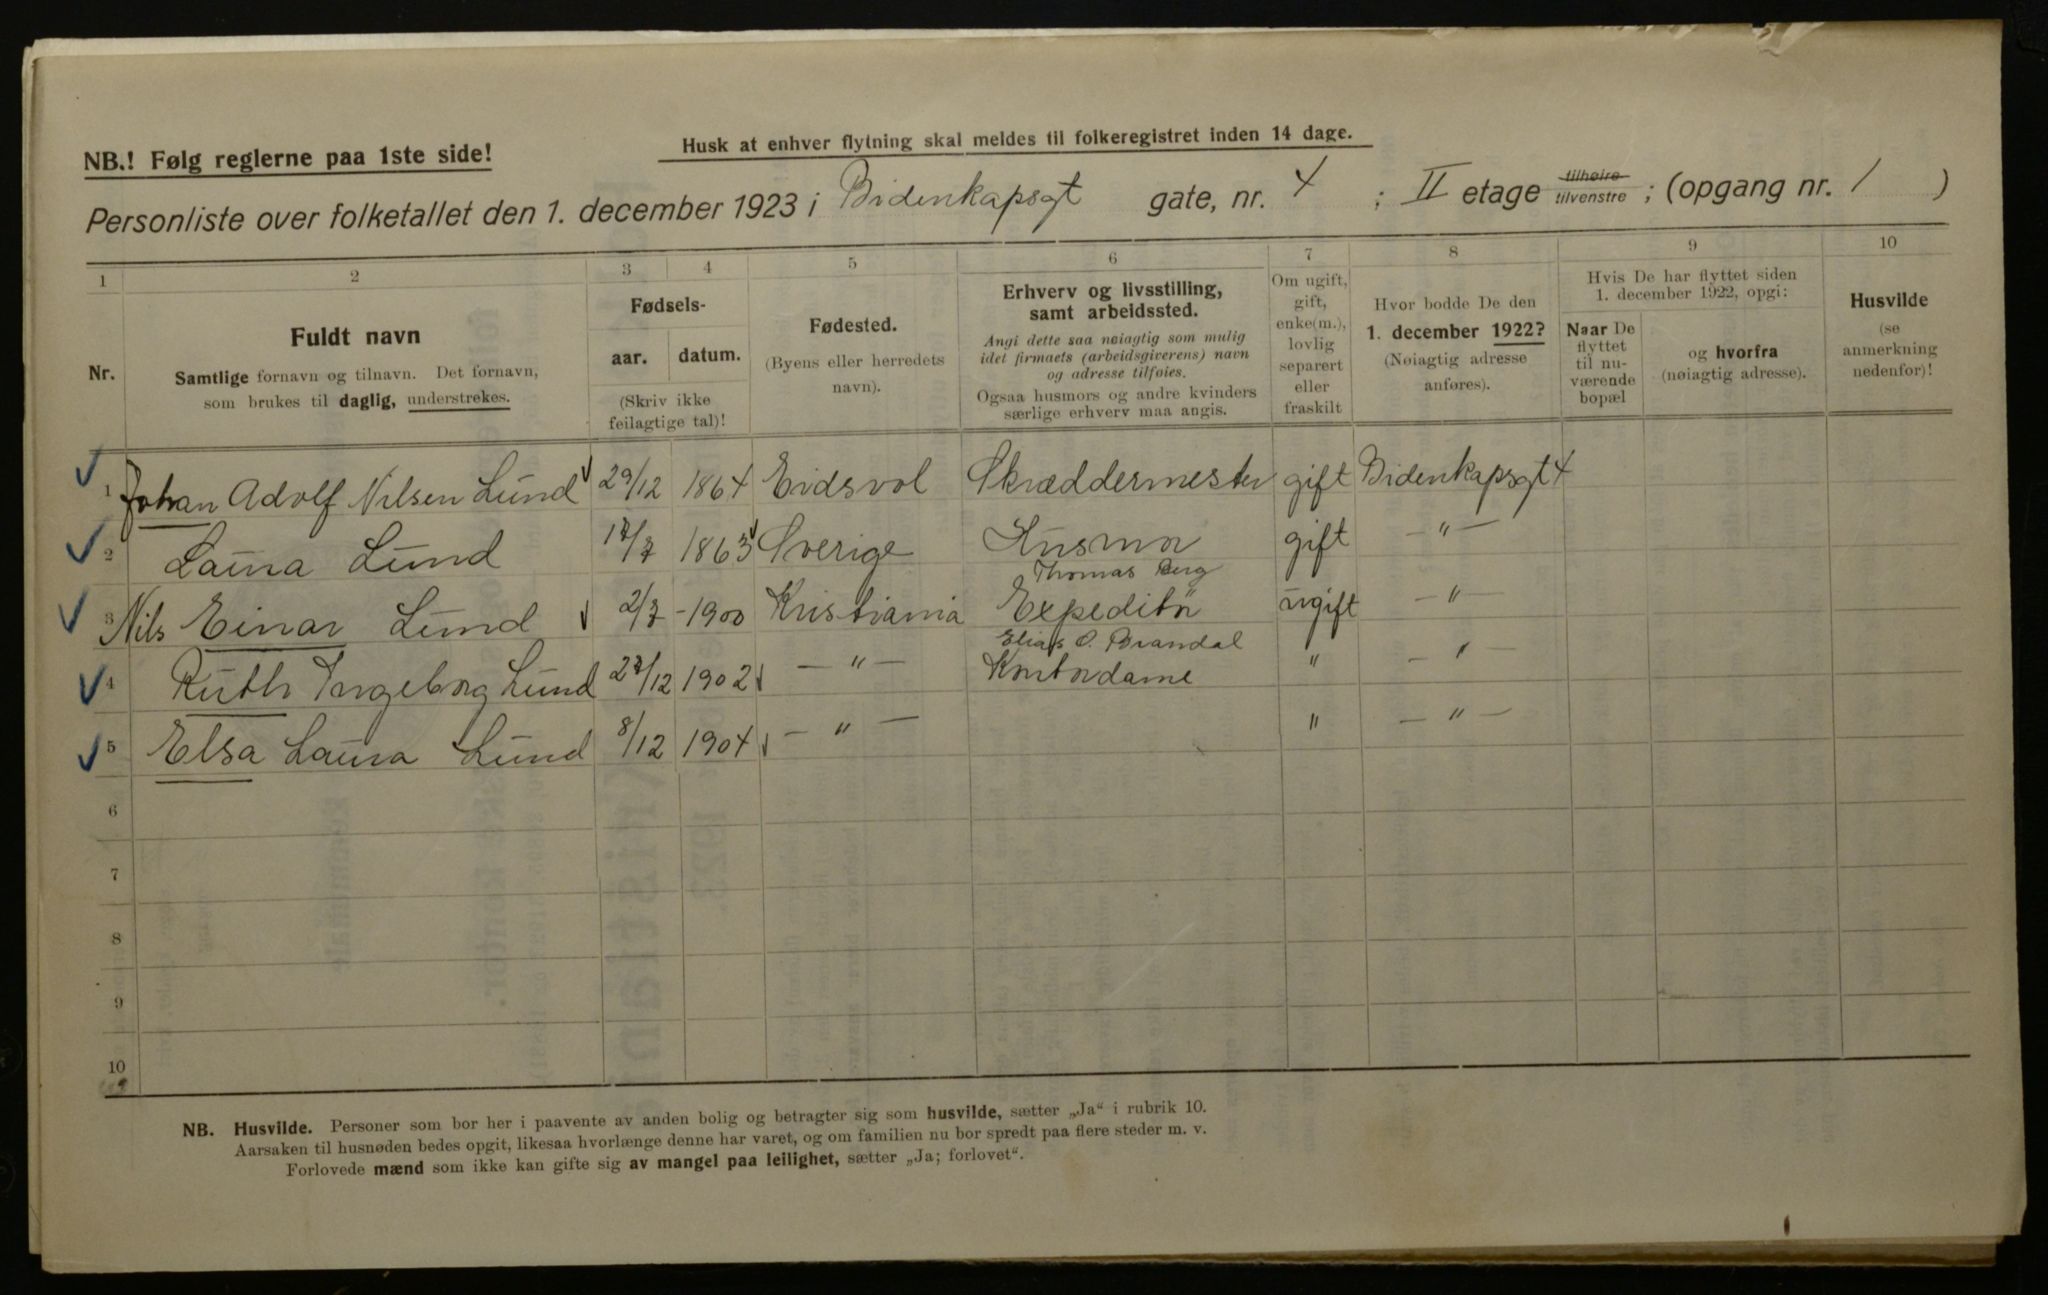 NB.! Følg reglerne paa 1ste side!
Husk at enhver flytning skal meldes til folkeregistret inden 14 dage.
Personliste over folketallet den 1. december 1923 i Bidenkapsgt gate, nr. 4 ; II etage tilhøire tilvenstre ; (opgang nr. 1 )
1 2 3 4 5 6 7 8 9 10
Nr.
Fuldt navn
Samtlige fornavn og tilnavn. Det fornavn,
som brukes til daglig, understrekes.
Fødsels-
aar. datum.
(Skriv ikke
feilagtige tal)!
Fødested.
(Byens eller herredets
navn).
Erhverv og livsstilling,
samt arbeidssted.
Angi dette saa nøiagtig som mulig
idet firmaets (arbeidsgiverens) navn
og adresse tilføies.
Ogsaa husmors og andre kvinders
særlige erhverv maa angis.
Om ugift,
gift,
enke(m.),
lovlig
separert
eller
fraskilt
Hvor bodde De den
1. december 1922?
(Nøiagtig adresse
anføres).
Hvis De har flyttet siden
1. december 1922, opgi:
Naar De
flyttet
til nu-
værende
bopæl
og hvorfra
(nøiagtig adresse).
Husvilde
(se
anmerkning
nedenfor)!
1 Johan Adolf Nilsen Lund 29/12 1864 Eidsvol Skræddermester gift Bidenkapsgt 4
2 Laura Lund 17/7 1863 Sverige Husmor gift — " —
Thomas Berg
3 Nils Einar Lund 2/7 - 1900 Kristiania Expeditør ugift — " —
Elias O. Brandal
4 Ruth Ingeborg Lund 27/12 1902 — " — Kontordame " — " —
5 Elsa Laura Lund 8/12 1904 — " — " — " —
6
7
8
9
10
NB. Husvilde. Personer som bor her i paavente av anden bolig og betragter sig som husvilde, sætter „Ja“ i rubrik 10.
Aarsaken til husnøden bedes opgit, likesaa hvorlænge denne har varet, og om familien nu bor spredt paa flere steder m. v.
Forlovede mænd som ikke kan gifte sig av mangel paa leilighet, sætter „Ja; forlovet“.